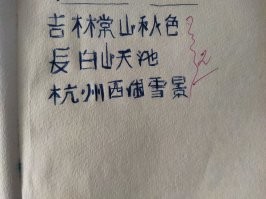 吉林常山秋色
长白山天池
杭州西湖雪景